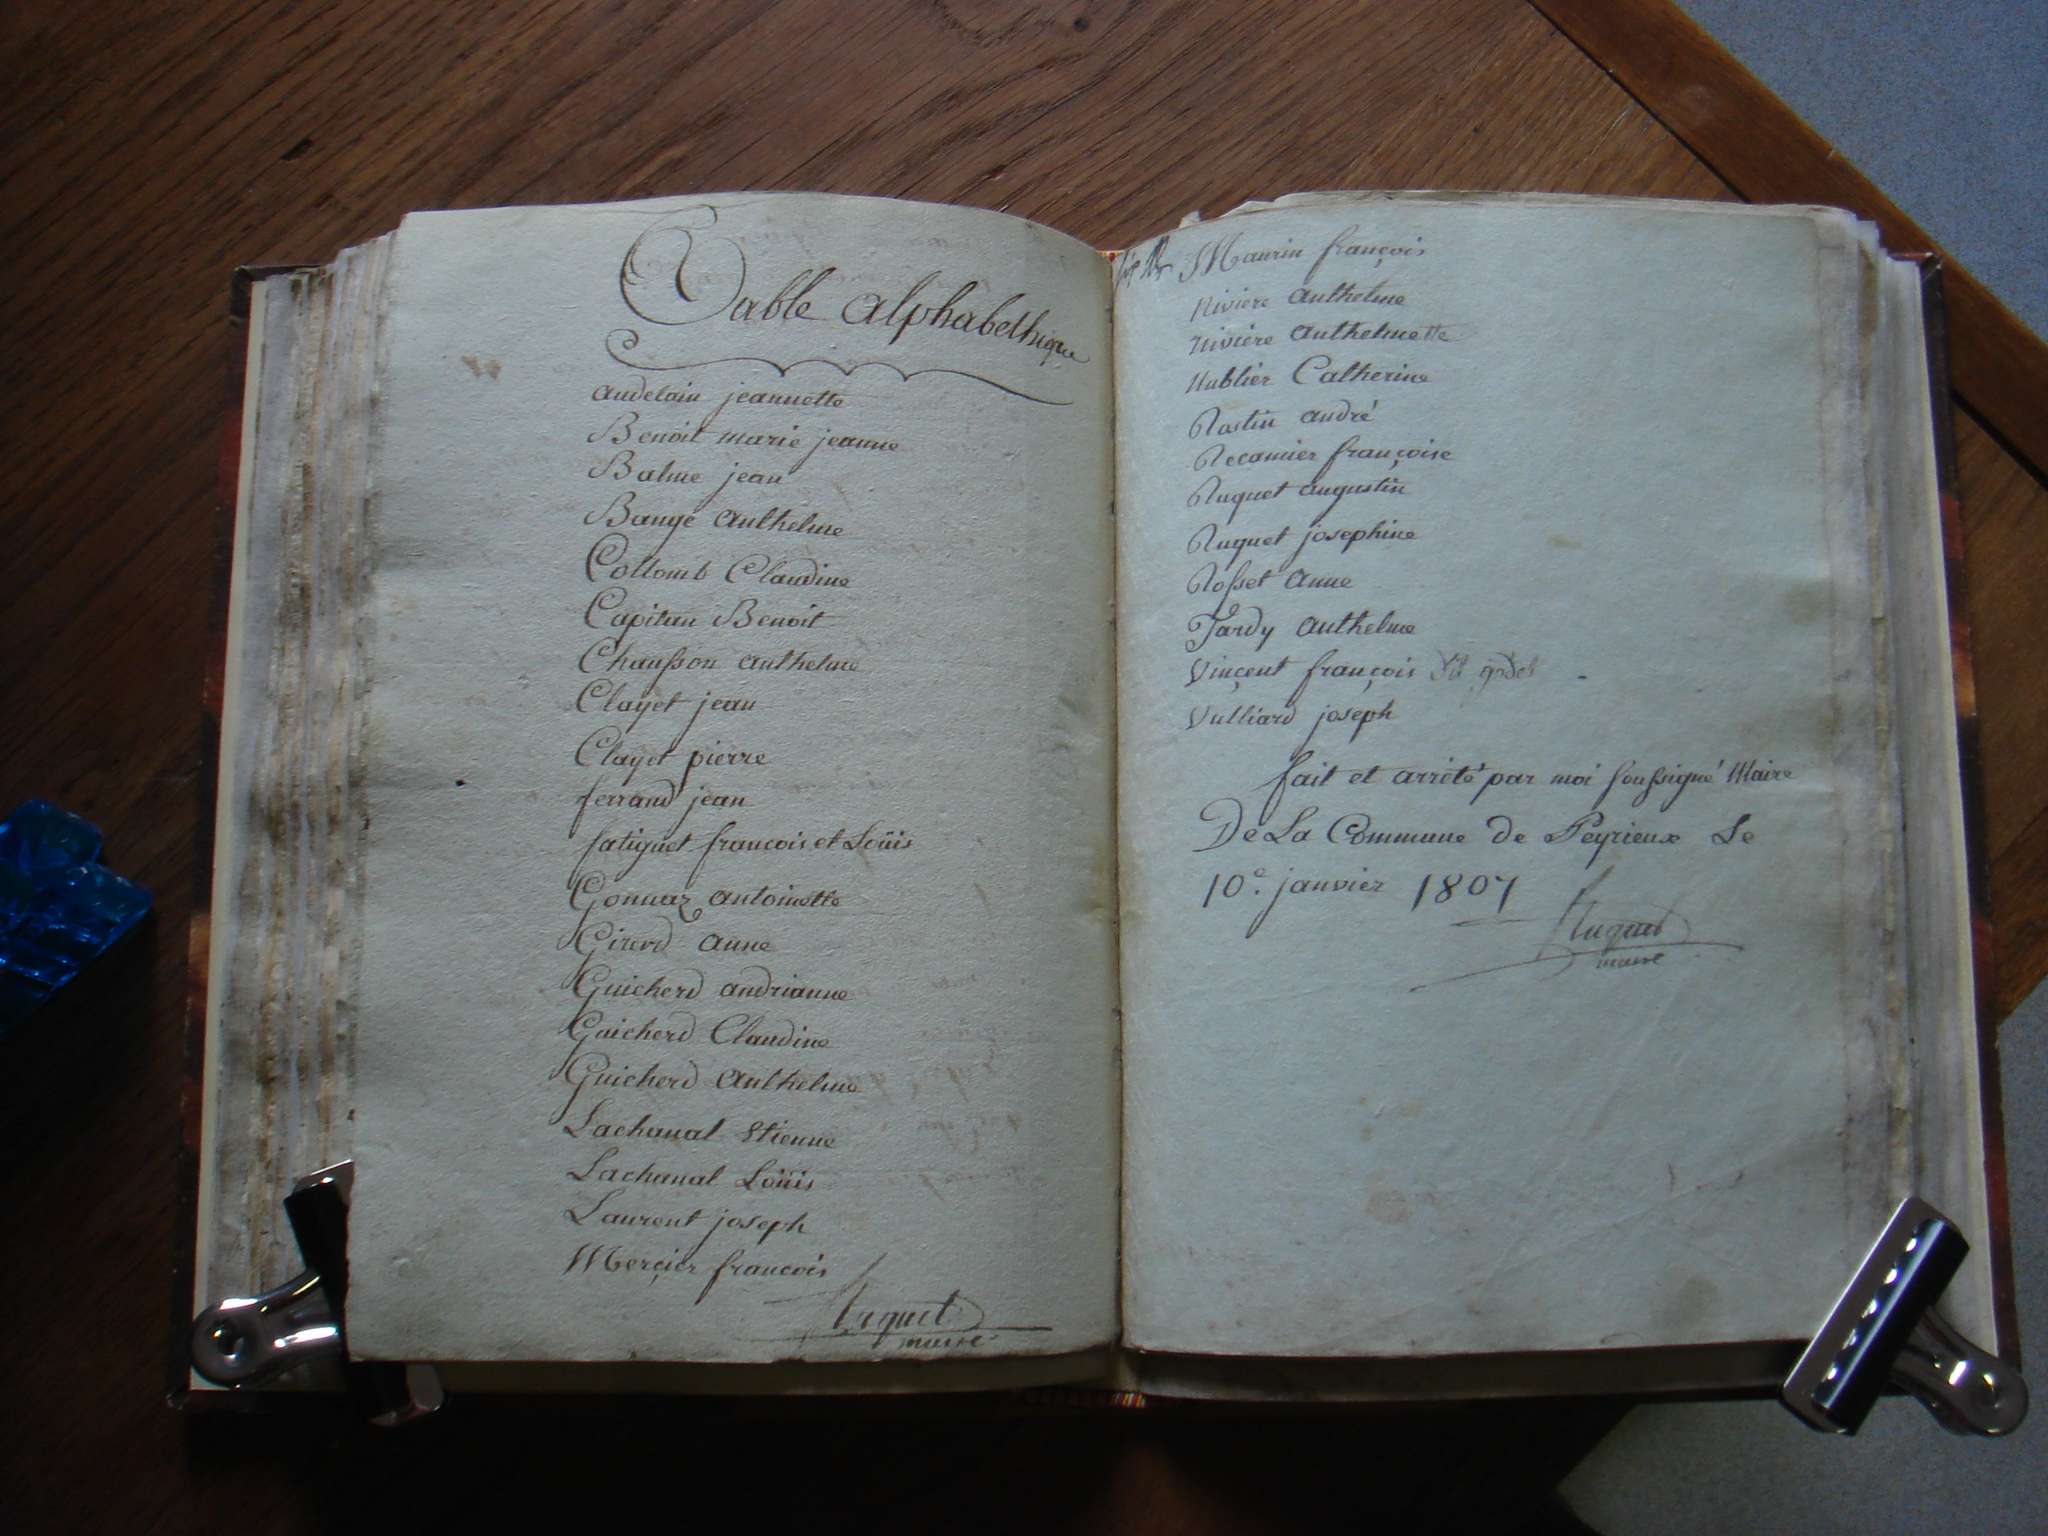 Table alphabethique
audeloin jeannette
Benoit marie jeanne
Balme jean
Bange anthelme
Collomb Claudine
Capitan Benoit
Chausson anthelme
Clayet jean
Clayet pierre
ferrand jean
fatiguet francois et Loüis
Gonnaz antoinette
Girerd anne
Guicherd andrianne
Guicherd Claudine
Guicherd anthelme
Lachanal Etienne
Lachanal Loüis
Laurent joseph
Merçier francois
Ruguet
maire
Maurin françois
Niviere anthelme
Niviere anthelmette
Nublier Catherine
Rostin andré
Recamier françoise
Ruguet augustin
Ruguet josephine
Rosset anne
Tardy anthelme
Vinçent françois dit
Vulliard joseph
fait et arrèté par moi soussigné Maire
De La Commune de Peyrieux Le
10e. janvier 1807
Ruguet
maire